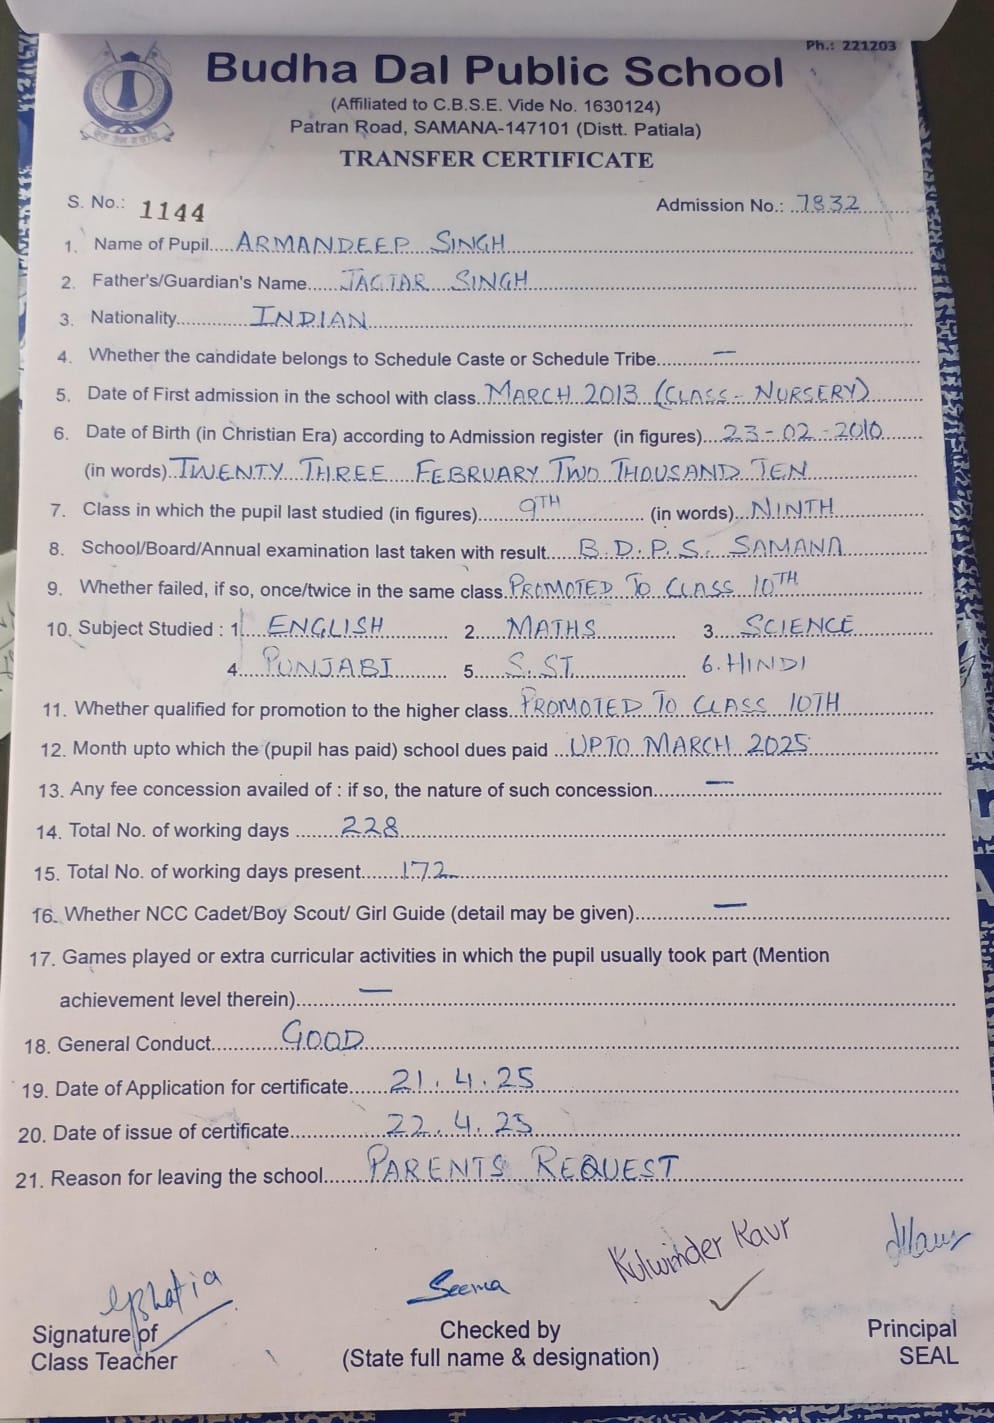 Ph.: 221203
Budha Dal Public School
(Affiliated to C.B.S.E. Vide No. 1630124)
Patran Road, SAMANA-147101 (Distt. Patiala)
TRANSFER CERTIFICATE
S. No.: 1144 Admission No.: 7832
1. Name of Pupil....ARMANDEEP SINGH
2. Father's/Guardian's Name......JAGTAR SINGH
3. Nationality.............INDIAN
4. Whether the candidate belongs to Schedule Caste or Schedule Tribe.......... —
5. Date of First admission in the school with class..MARCH 2013 (CLASS - NURSERY)
6. Date of Birth (in Christian Era) according to Admission register (in figures)...23-02-2010
(in words)..TWENTY THREE FEBRUARY TWO THOUSAND TEN
7. Class in which the pupil last studied (in figures)......9TH (in words)...NINTH
8. School/Board/Annual examination last taken with result.....B.D.P.S. SAMANA
9. Whether failed, if so, once/twice in the same class.PROMOTED TO CLASS 10TH
10. Subject Studied : 1....ENGLISH 2....MATHS 3....SCIENCE
4....PUNJABI 5.....S.ST. 6. HINDI
11. Whether qualified for promotion to the higher class..PROMOTED TO CLASS 10TH
12. Month upto which the (pupil has paid) school dues paid ...UPTO MARCH 2025
13. Any fee concession availed of : if so, the nature of such concession.......... —
14. Total No. of working days .......228
15. Total No. of working days present......172
16. Whether NCC Cadet/Boy Scout/ Girl Guide (detail may be given)............. —
17. Games played or extra curricular activities in which the pupil usually took part (Mention
achievement level therein)........... —
18. General Conduct............GOOD
19. Date of Application for certificate......21.4.25
20. Date of issue of certificate...............22.4.25
21. Reason for leaving the school.......PARENTS REQUEST
Kulwinder Kaur
Seema
Signature of Checked by Principal
Class Teacher (State full name & designation) SEAL